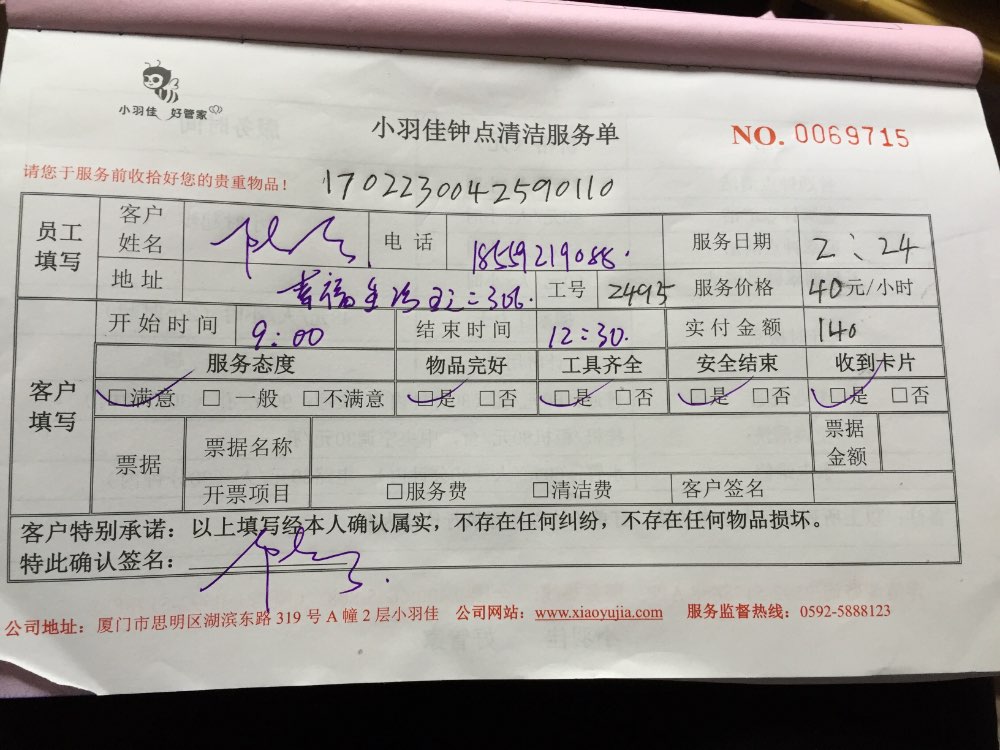 小羽佳 好管家
小羽佳钟点清洁服务单
NO. 0069715
请您于服务前收拾好您的贵重物品！
1702230042590110
员工填写
客户姓名
电 话 18559219088.
服务日期 2、24
地 址 幸福 306.
工号 24915
服务价格 40元/小时
客户填写
开始时间 9:00
结束时间 12:30.
实付金额 140
服务态度 物品完好 工具齐全 安全结束 收到卡片
☑满意 □ 一般 □不满意 ☑是 □否 ☑是 □否 ☑是 □否 ☑是 □否
票据
票据名称
票据金额
开票项目 □服务费 □清洁费 客户签名
客户特别承诺：以上填写经本人确认属实，不存在任何纠纷，不存在任何物品损坏。
特此确认签名：
公司地址：厦门市思明区湖滨东路 319 号 A 幢 2 层小羽佳 公司网站：www.xiaoyujia.com 服务监督热线：0592-5888123